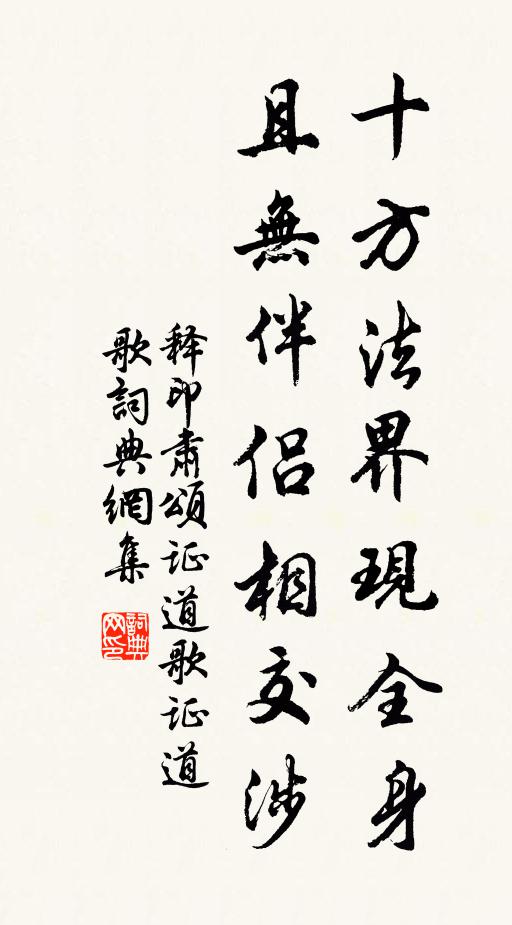 十方法界現全身
且無伴侣相交涉
释印肅頌证道歌证道
歌詞典網集
詞典网印